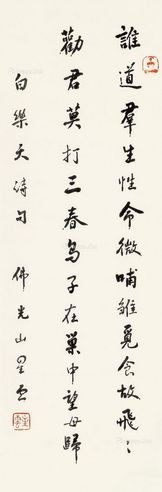 誰道羣生性命微哺雛覓食故飛〻
勸君莫打三春鳥子在巢中望母歸
白樂天詩句 佛光山星雲